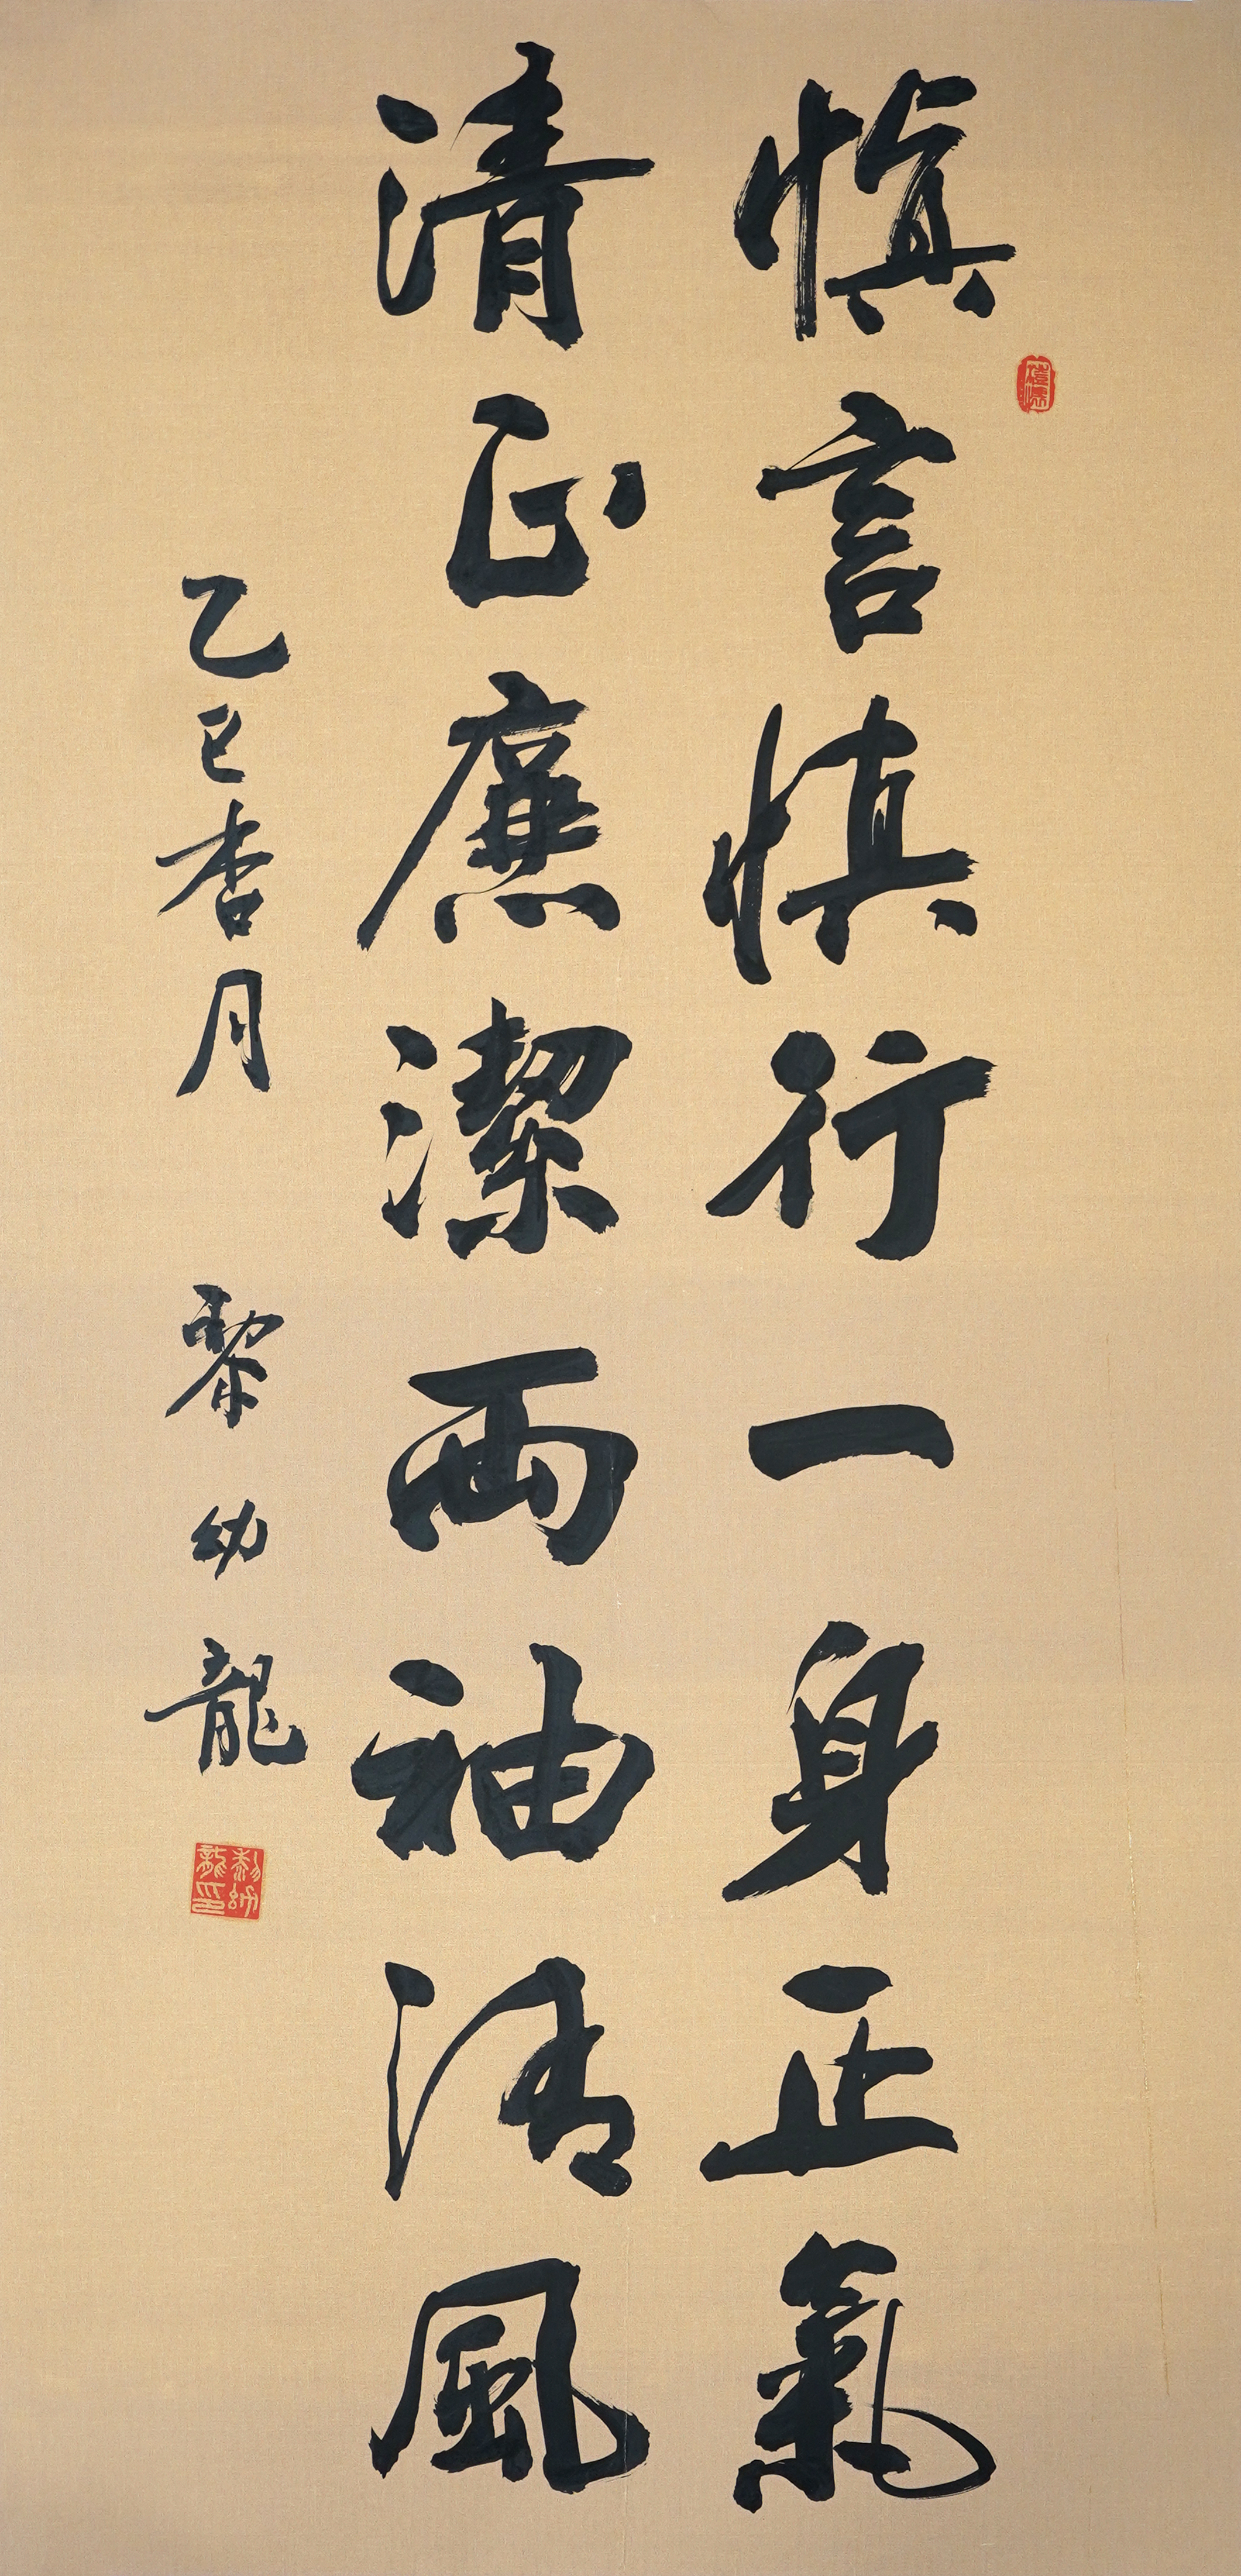 慎言慎行一身正氣
清正廉潔兩袖清風
乙巳杏月 黎幼龍
黎幼龍印